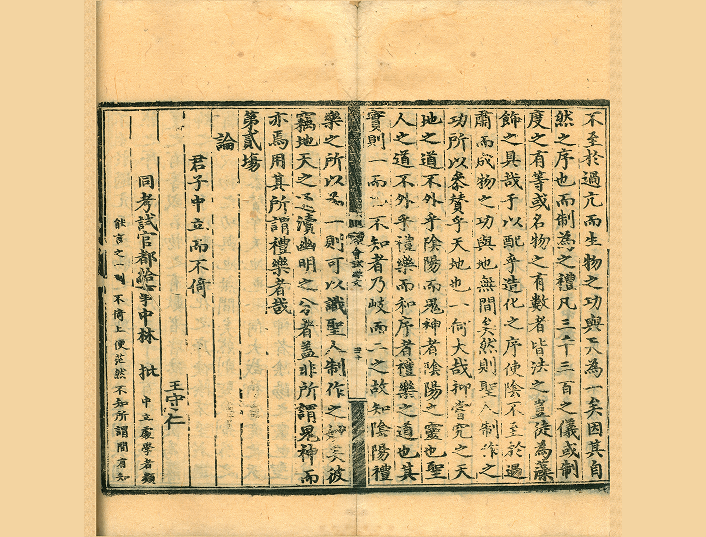 不至於過亢而生物之功與天為一矣因其自
然之序也而制為之禮凡三千三百之儀或制
度之有等或名物之有數者皆法之豈徒為藻
飾之具哉于以配乎造化之序使陰不至於過
肅而成物之功與地無間矣然則聖人制作之
功所以叅贊乎天地也一何大哉抑嘗究之天
地之道不外乎陰陽而鬼神者陰陽之靈也聖
人之道不外乎禮樂而和序者禮樂之道也其
實則一而不知者乃岐而二之故知陰陽禮
樂之所以為一則可以識聖人制作之矣彼
竊地天之瀆幽明之分者蓋非所謂鬼神而
亦焉用其所謂禮樂者哉
第貳塲
論
君子中立而不倚
王守仁
同考試官都給事中林 批 中立處學者類
能言之一到不倚上便茫然不知所謂間有知
會試錄文